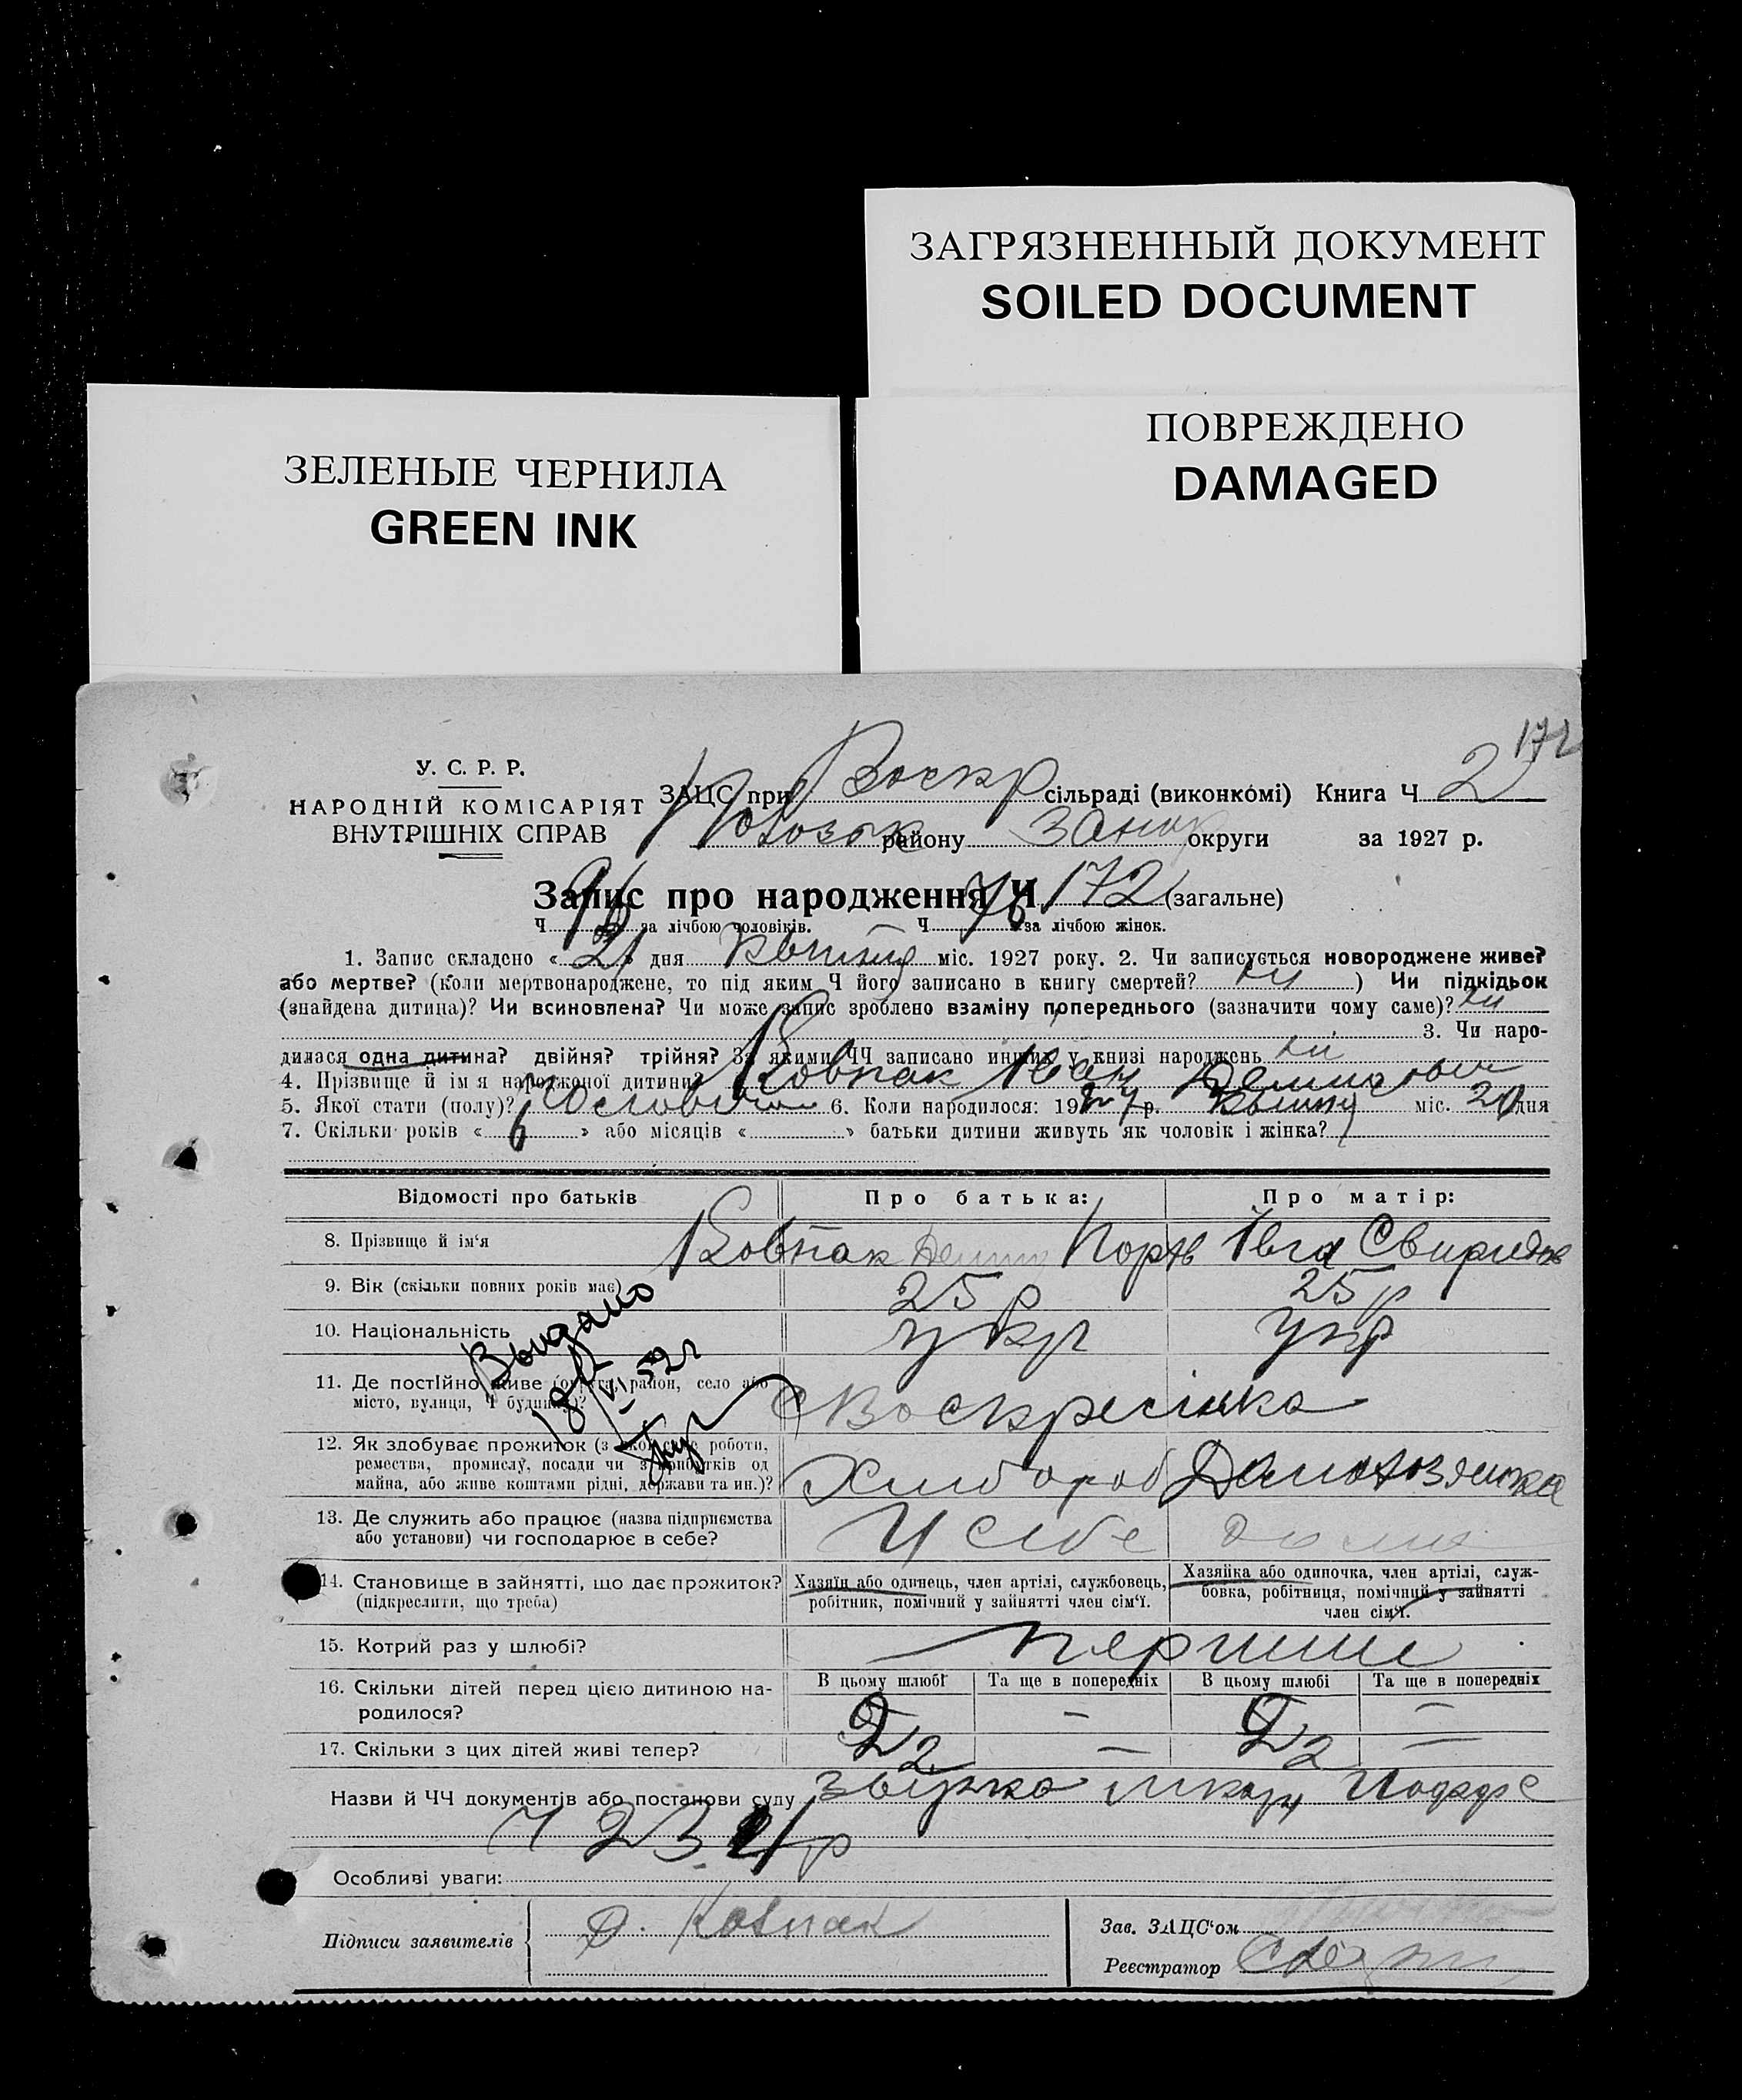 ЗАГРЯЗНЕННЫЙ ДОКУМЕНТ
SOILED DOCUMENT
ПОВРЕЖДЕНО
DAMAGED
ЗЕЛЕНЫЕ ЧЕРНИЛА
GREEN INK
172
У. С. Р. Р.
НАРОДНІЙ КОМІСАРІЯТ
ВНУТРІШНІХ СПРАВ
ЗАЦС при Воскр сільраді (виконкомі) Книга Ч 2
району округи за 1927 р.
Запис про народження Ч 172 (загальне)
Ч за лічбою чоловіків. Ч 76 за лічбою жінок.
1. Запис складено « 21 » дня квітня міс. 1927 року. 2. Чи записується новороджене живе?
або мертве? (коли мертвонароджене, то під яким Ч його записано в книгу смертей? ні ) Чи підкідьок
(знайдена дитина)? Чи всиновлена? Чи може запис зроблено взаміну попереднього (зазначити чому саме)? ні
3. Чи наро-
дилася одна дитина? двійня? трійня? За якими ЧЧ записано инших у книзі народжень ні
4. Прізвище й ім'я народженої дитини? Ковпак Іван
5. Якої стати (полу)? 6. Коли народилося: 1927 р. квітня міс. 20 дня
7. Скільки років « 6 » або місяців « » батьки дитини живуть як чоловік і жінка?
Відомості про батьків
Про батька:
Про матір:
8. Прізвище й ім'я
Ковпак Івга
9. Вік (скільки повних років має)
25 р
25 р
10. Національність
укр
укр
Выдано
18/VI 52г
11. Де постійно живе (округа, район, село або
місто, вулиця, Ч будинку)?
с Воскресінка
12. Як здобуває прожиток (з якої саме роботи,
ремества, промислу, посади чи з прибутків од
майна, або живе коштами рідні, держави та ин.)?
Хлібороб
13. Де служить або працює (назва підприємства
або установи) чи господарює в себе?
У себе
дома
14. Становище в зайнятті, що дає прожиток?
(підкреслити, що треба)
Хазяїн або одинець, член артілі, службовець,
робітник, помічний у зайнятті член сім'ї.
Хазяйка або одиночка, член артілі, служ-
бовка, робітниця, помічний у зайнятті
член сім'ї.
15. Котрий раз у шлюбі?
перший
16. Скільки дітей перед цією дитиною на-
родилося?
В цьому шлюбі
Та ще в попередніх
В цьому шлюбі
Та ще в попередніх
2 — 2 —
17. Скільки з цих дітей живі тепер?
2 — 2 —
Назви й ЧЧ документів або постанови суду
Особливі уваги:
Підписи заявителів
Д. Ковпак
Зав. ЗАЦС'ом
Реєстратор